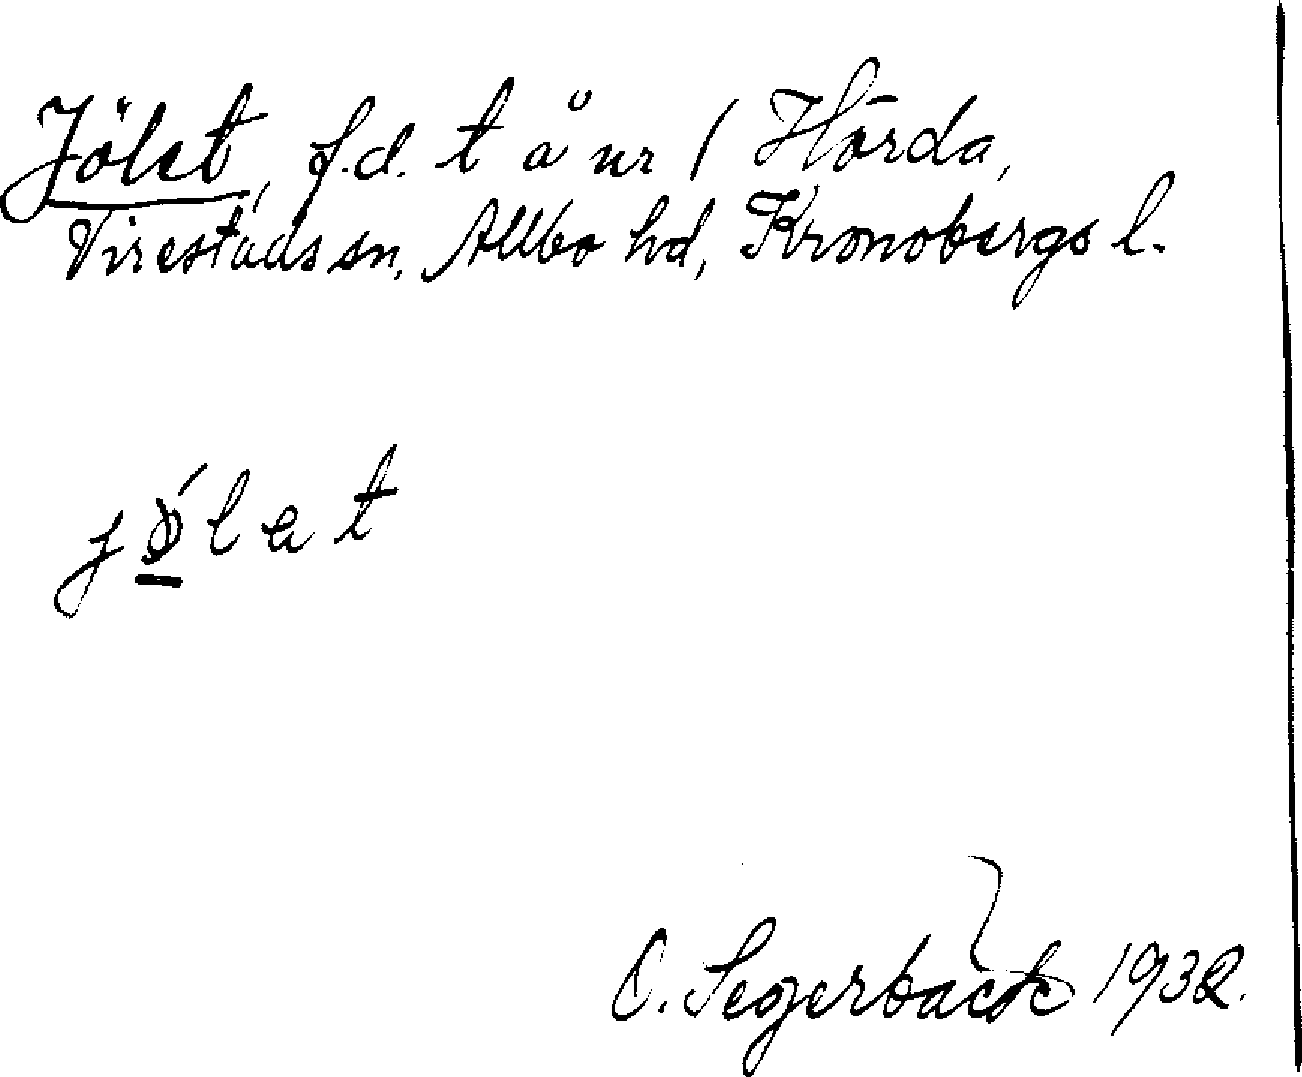 Jölet, f.d. t å nr 1 Hörda,
Virestads sn, Allbo hd, Kronobergs l.
jǿlat
O. Segerbäck 1932.